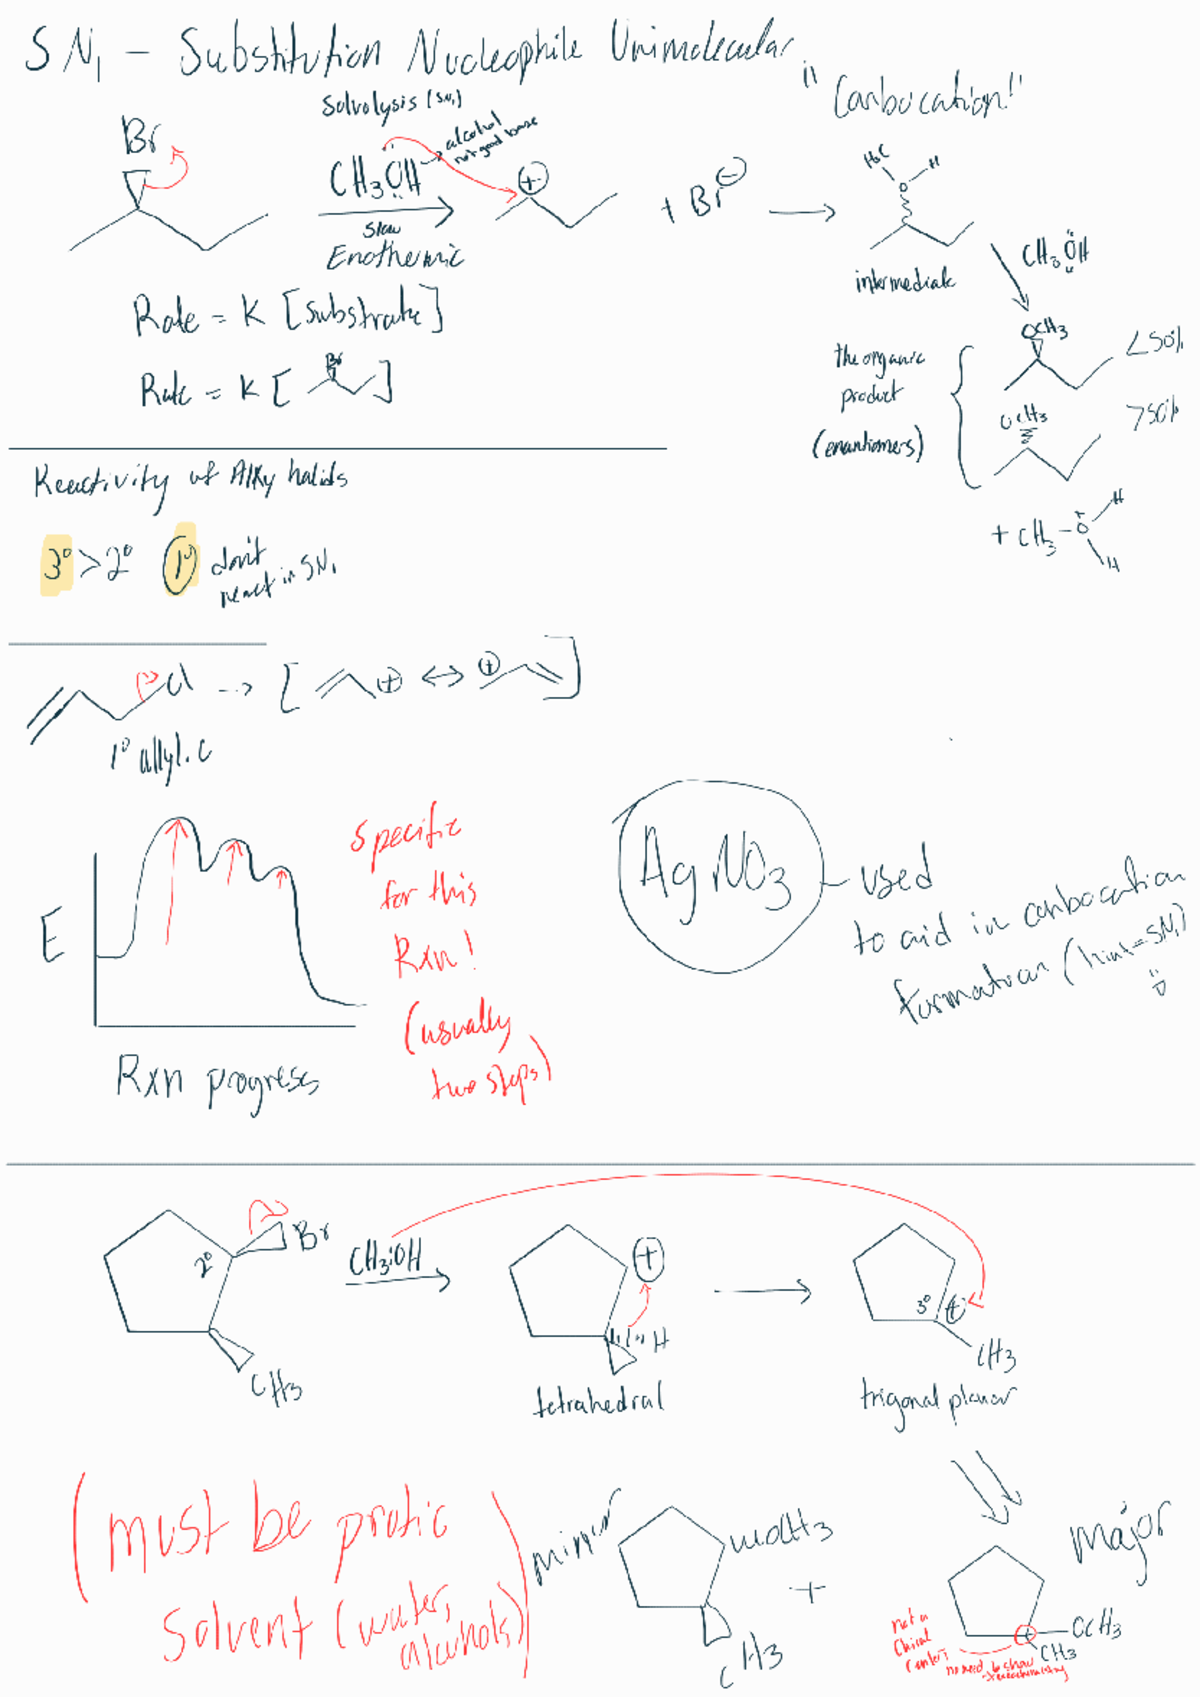 SN1 - Substitution Nucleophile Unimolecular
"Carbocation!"
Solvolysis (SN1)
Br
CH3ÖH
alcohol
not good base
slow
Enothermic
+
+ Br⊖
H3C
H
O
intermediate
CH3ÖH
Rate = K [substrate]
Rate = K [
Br
]
the organic
product
(enantiomers)
OCH3
<50%
OCH3
>50%
+ CH3-O
H
H
Reactivity of Alky halids
3° > 2° 1° don't
react in SN1
Cl
[ + ↔ + ]
1° allyl. C
E
Rxn progress
Specific
for this
Rxn!
(usually
two steps)
AgNO3
- used
to aid in carbocation
formation (hint=SN1)
2°
Br
CH3
CH3ÖH
+
H
tetrahedral
3°
+
CH3
trigonal planar
(must be protic
solvent (water,
alcohols)
minor
OCH3
CH3
+
major
OCH3
CH3
not a
Chiral
Center
no need to show